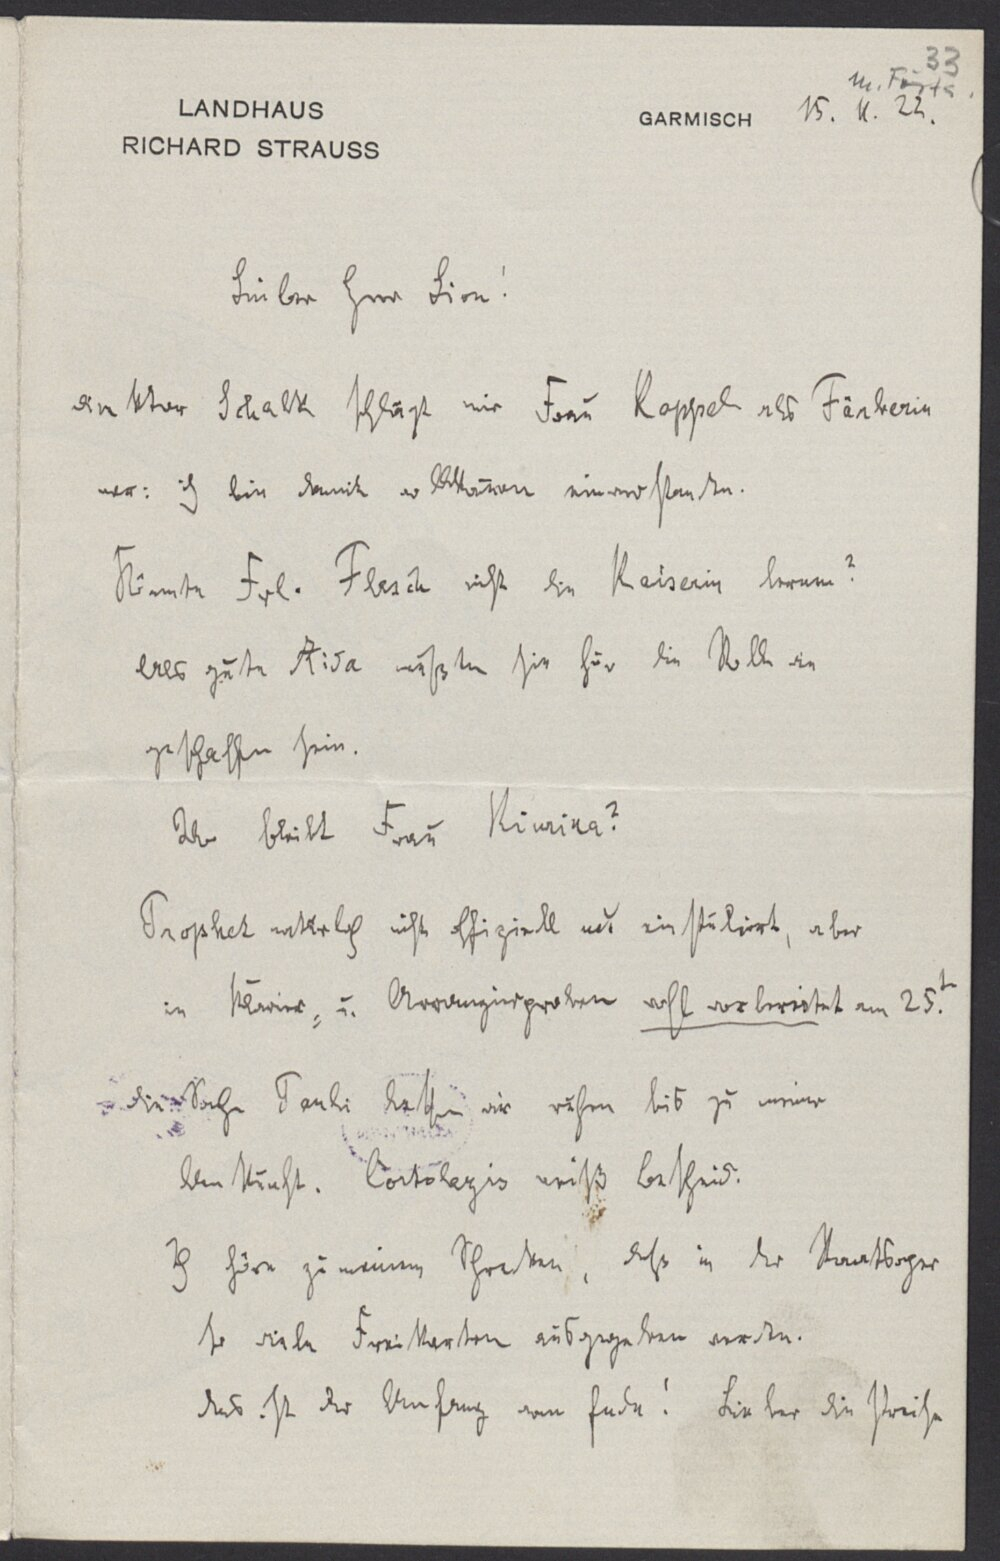 33
LANDHAUS
RICHARD STRAUSS
GARMISCH 15. 11. 22.
Lieber Herr Lion!
direktor Schalk schlägt mir Frau Koppel als Färberin
vor: ich bin damit vollkommen einverstanden.
Könnte Frl. Flesch nicht die Kaiserin lernen?
als gute Aida müßte sie für die Rolle
geschaffen sein.
Wo bleibt Frau Kiurina?
Prophet natürlich nicht offiziell neu einstudiert, aber
in Klavier- u. Arrangierproben wohl vorbereitet am 25.t
die Sache Tauber lassen wir ruhen bis zu meiner
Ankunft. Cortolezis weiß bescheid.
Ich höre zu meinem Schrecken, daß in der Staatsoper
so viele Freikarten ausgegeben werden.
das ist der Anfang vom Ende! Lieber die Preise